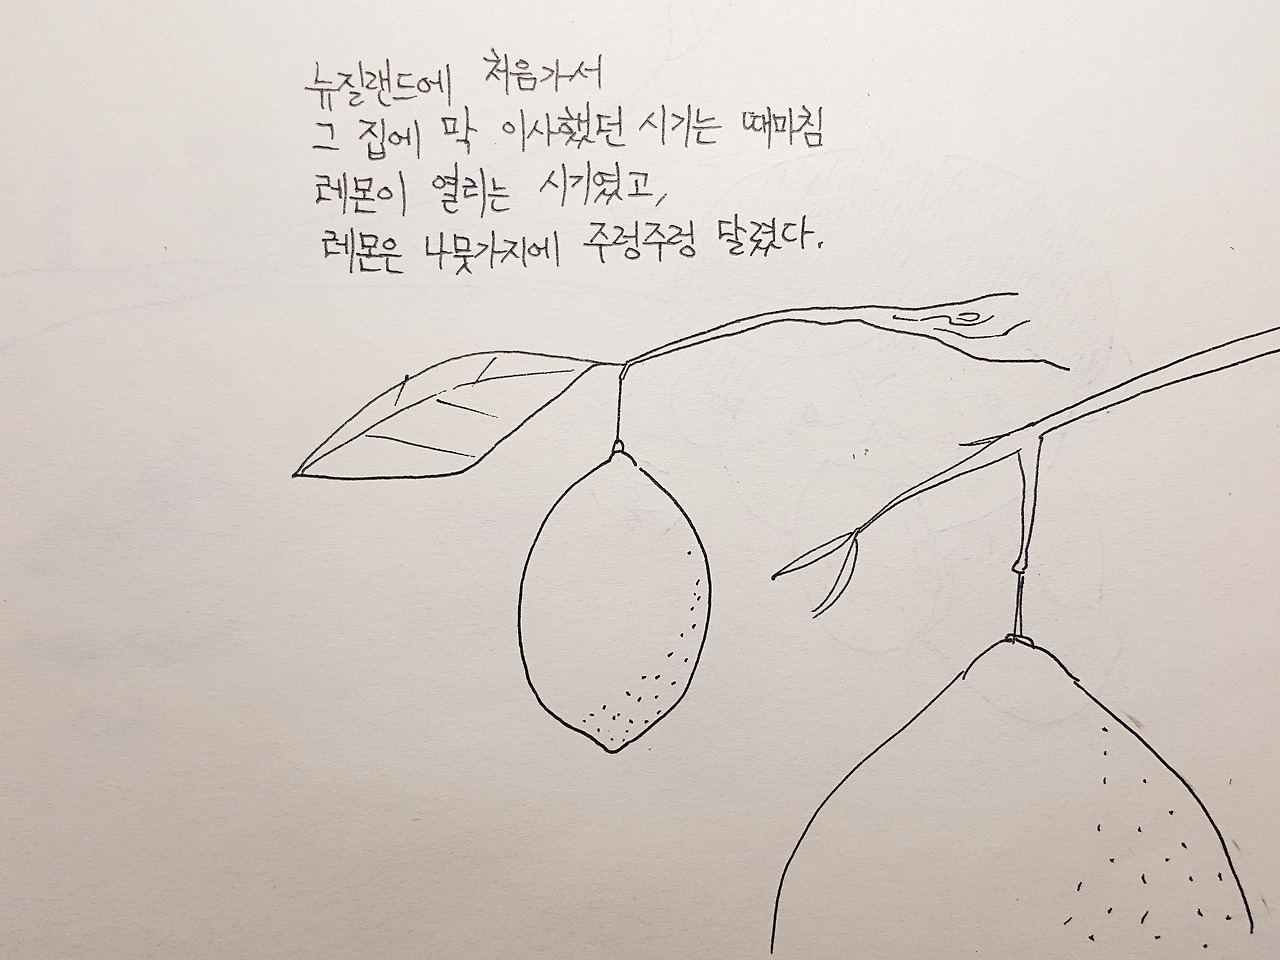 뉴질랜드에 처음가서
그 집에 막 이사했던 시기는 때마침
레몬이 열리는 시기였고,
레몬은 나뭇가지에 주렁주렁 달렸다.